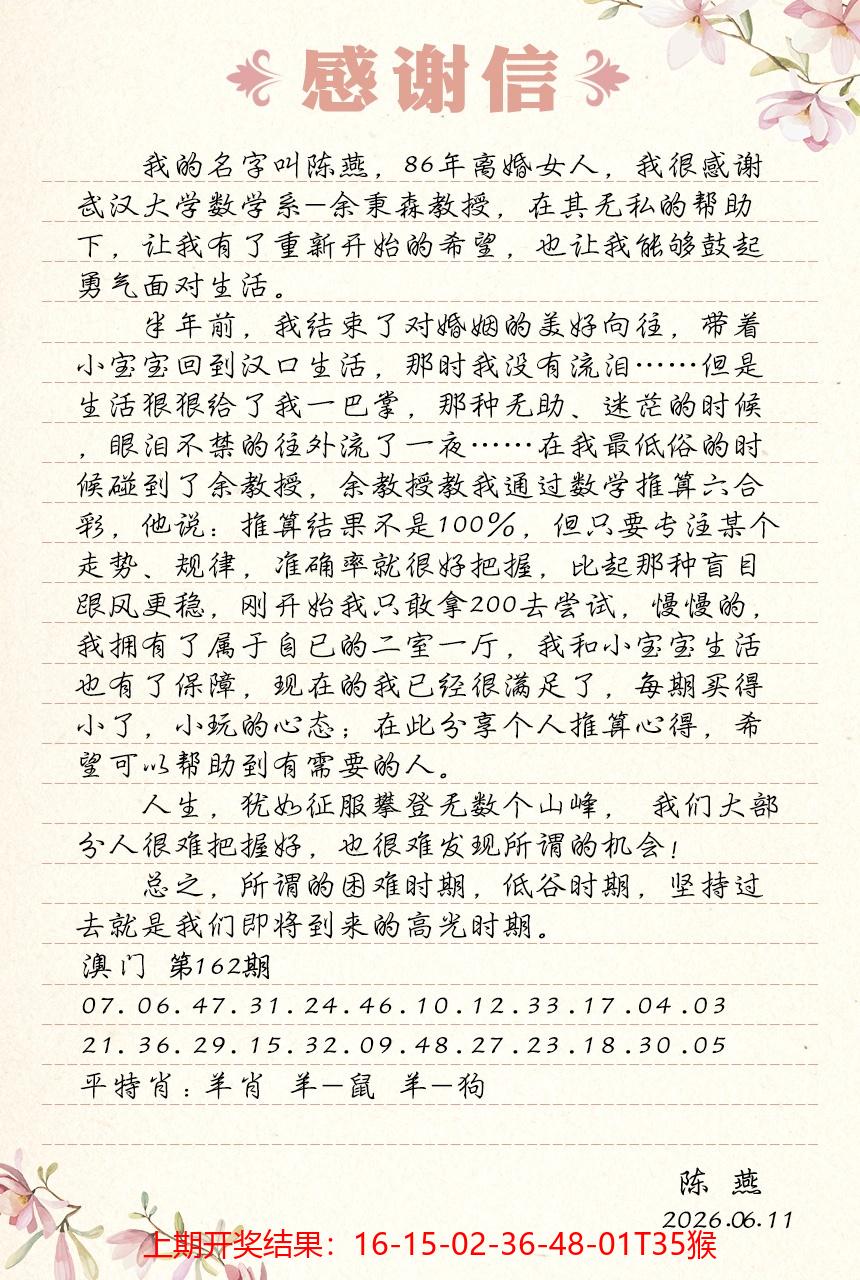 感谢信
我的名字叫陈燕，86年离婚女人，我很感谢
武汉大学数学系—余秉森教授，在其无私的帮助
下，让我有了重新开始的希望，也让我能够鼓起
勇气面对生活。
半年前，我结束了对婚姻的美好向往，带着
小宝宝回到汉口生活，那时我没有流泪……但是
生活狠狠给了我一巴掌，那种无助、迷茫的时候
，眼泪不禁的往外流了一夜……在我最低俗的时
候碰到了余教授，余教授教我通过数学推算六合
彩，他说：推算结果不是100%，但只要专注某个
走势、规律，准确率就很好把握，比起那种盲目
跟风更稳，刚开始我只敢拿200去尝试，慢慢的，
我拥有了属于自己的二室一厅，我和小宝宝生活
也有了保障，现在的我已经很满足了，每期买得
小了，小玩的心态；在此分享个人推算心得，希
望可以帮助到有需要的人。
人生，犹如征服攀登无数个山峰， 我们大部
分人很难把握好，也很难发现所谓的机会！
总之，所谓的困难时期，低谷时期，坚持过
去就是我们即将到来的高光时期。
澳门 第162期
07.06.47.31.24.46.10.12.33.17.04.03
21.36.29.15.32.09.48.27.23.18.30.05
平特肖：羊肖 羊—鼠 羊—狗
陈 燕
2026.06.11
上期开奖结果：16-15-02-36-48-01T35猴